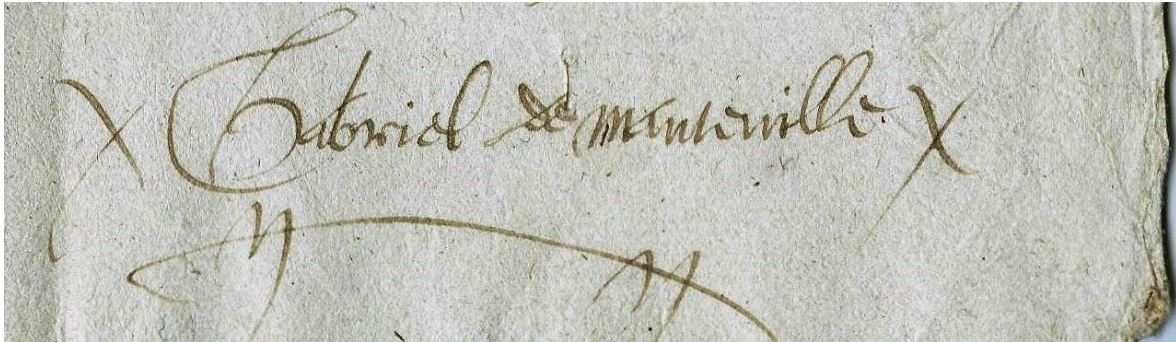 Gabriel de manteville